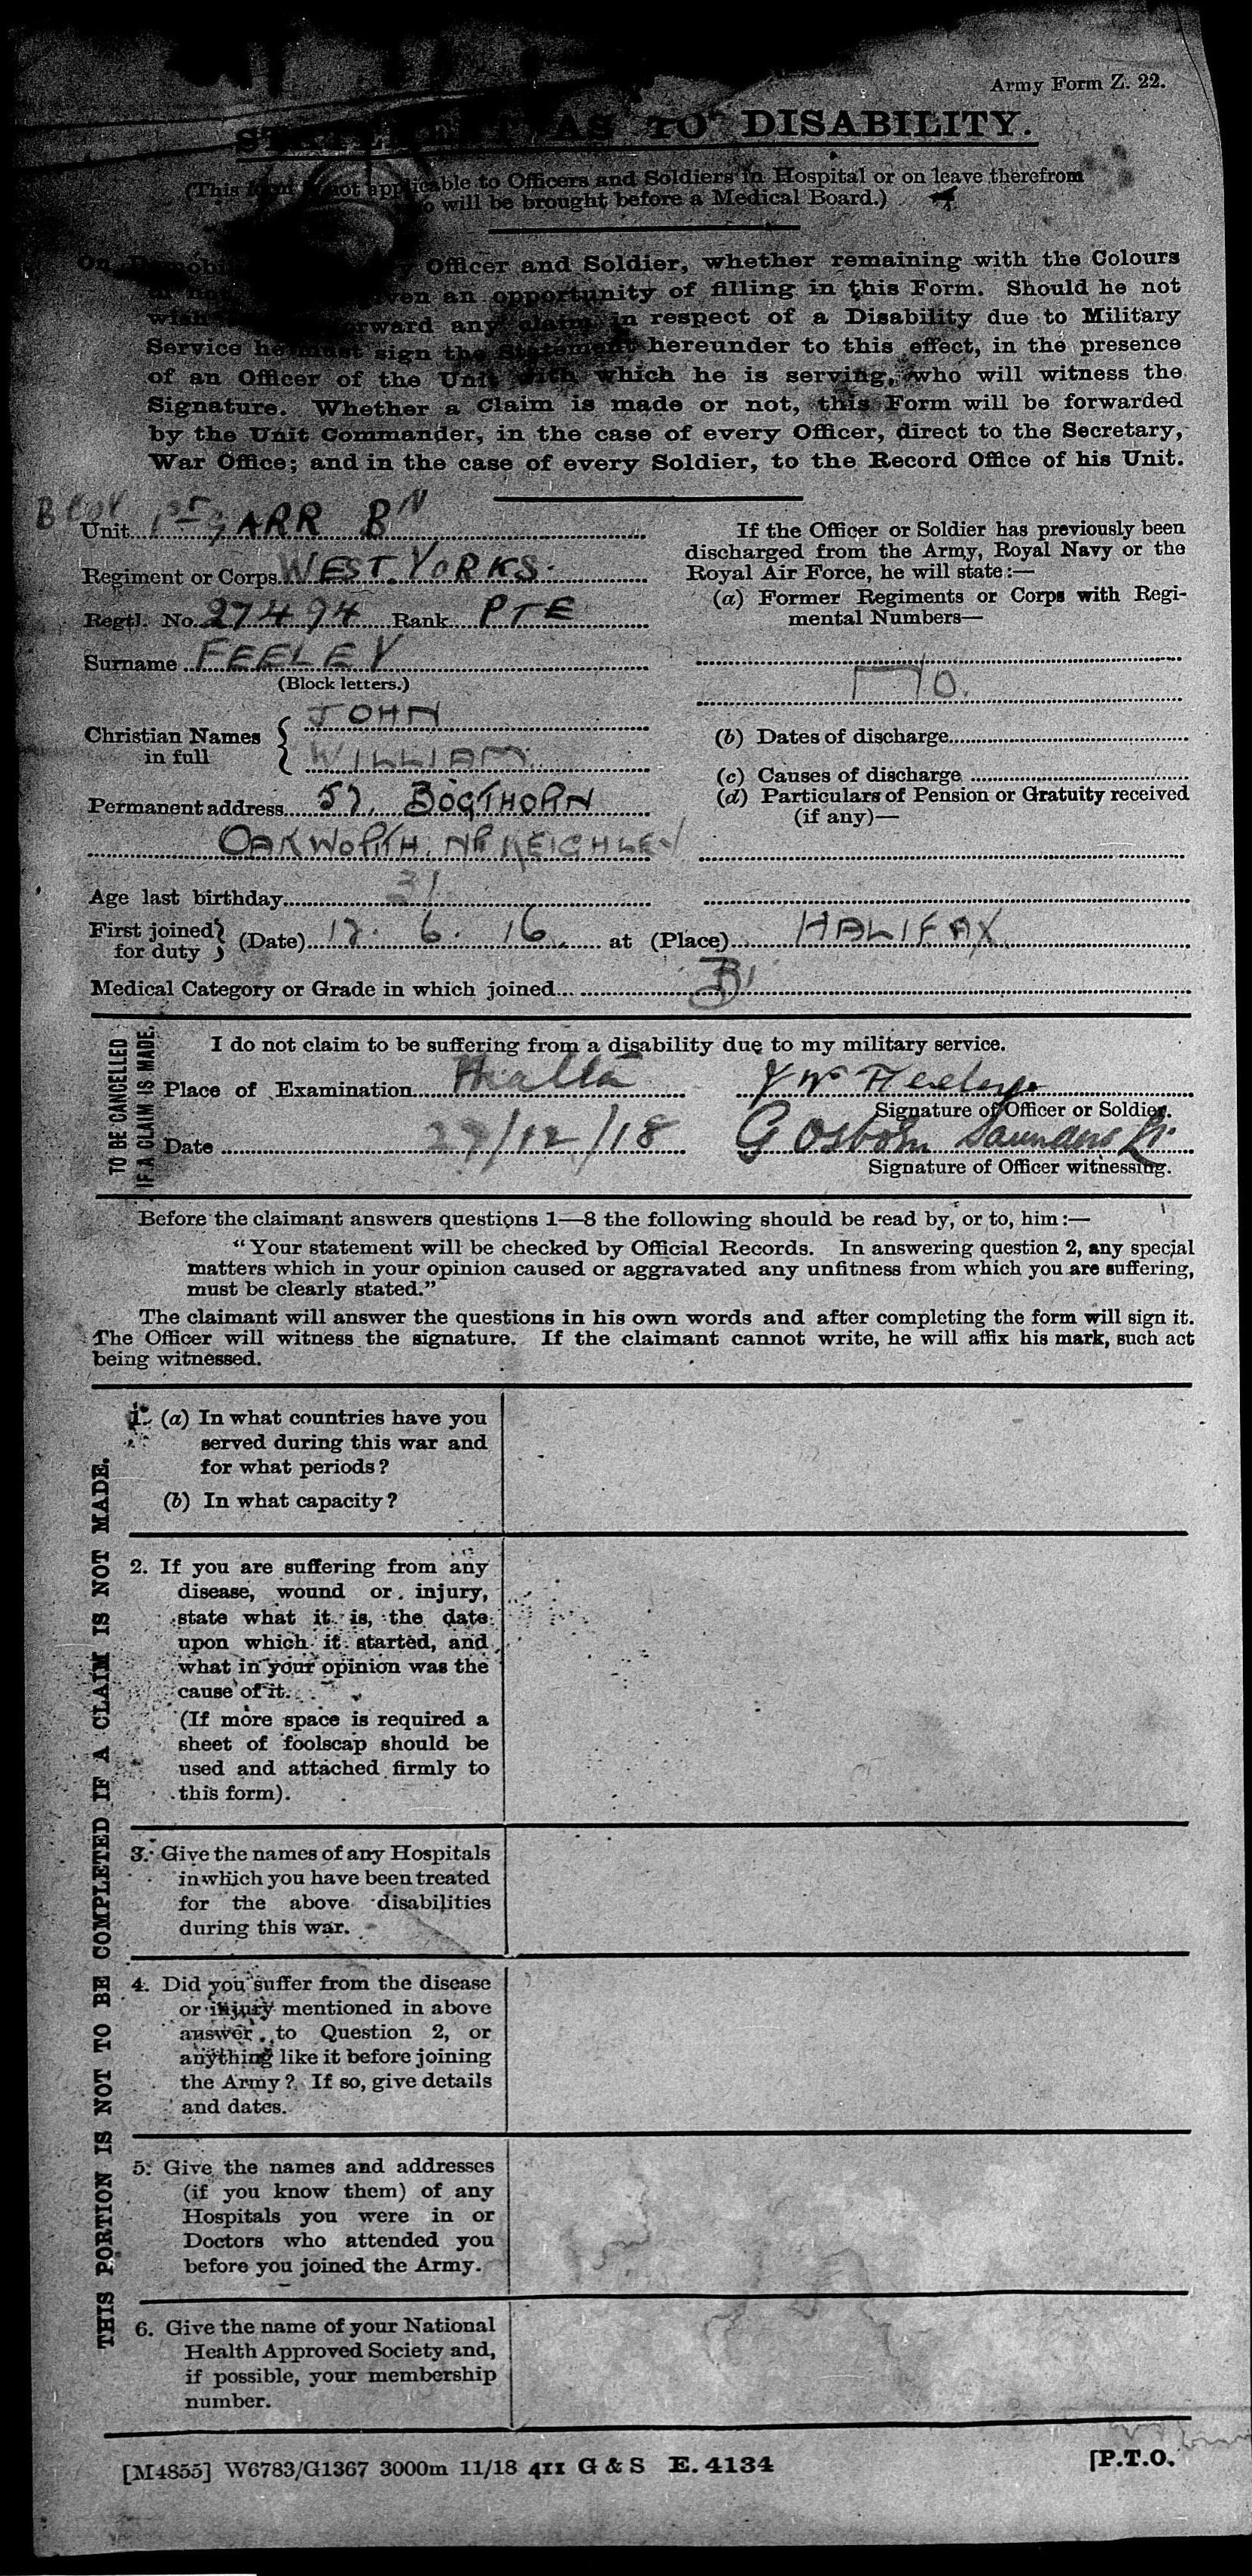 Army Form Z. 22.
STATEMENT AS TO DISABILITY.
(This form is not applicable to Officers and Soldiers in Hospital or on leave therefrom
who will be brought before a Medical Board.)
On Officer and Soldier, whether remaining with the Colours
given an opportunity of filling in this Form. Should he not
wish forward any claim in respect of a Disability due to Military
Service he must sign the Statement hereunder to this effect, in the presence
of an Officer of the Unit with which he is serving, who will witness the
Signature. Whether a Claim is made or not, this Form will be forwarded
by the Unit Commander, in the case of every Officer, direct to the Secretary,
War Office; and in the case of every Soldier, to the Record Office of his Unit.
Unit 1st GARR BN
Regiment or Corps WEST YORKS.
Regtl. No. 27494 Rank PTE
Surname FEELEY
(Block letters.)
Christian Names in full { JOHN
WILLIAM
Permanent address 57, BOGTHORN
OAKWORTH. NR KEIGHLEY
Age last birthday 31
If the Officer or Soldier has previously been
discharged from the Army, Royal Navy or the
Royal Air Force, he will state:—
(a) Former Regiments or Corps with Regi-
mental Numbers—
NO.
(b) Dates of discharge
(c) Causes of discharge
(d) Particulars of Pension or Gratuity received
(if any)—
First joined for duty } (Date) 17. 6. 16 at (Place) HALIFAX
Medical Category or Grade in which joined B1
TO BE CANCELLED
IF A CLAIM IS MADE.
I do not claim to be suffering from a disability due to my military service.
Place of Examination Malta J W Feeley
Signature of Officer or Soldier.
Date 27/12/18 G Osborn Saunders Lt.
Signature of Officer witnessing.
Before the claimant answers questions 1—8 the following should be read by, or to, him:—
"Your statement will be checked by Official Records. In answering question 2, any special
matters which in your opinion caused or aggravated any unfitness from which you are suffering,
must be clearly stated."
The claimant will answer the questions in his own words and after completing the form will sign it.
The Officer will witness the signature. If the claimant cannot write, he will affix his mark, such act
being witnessed.
THIS PORTION IS NOT TO BE COMPLETED IF A CLAIM IS NOT MADE.
1. (a) In what countries have you
served during this war and
for what periods?
(b) In what capacity?
2. If you are suffering from any
disease, wound or injury,
state what it is, the date
upon which it started, and
what in your opinion was the
cause of it.
(If more space is required a
sheet of foolscap should be
used and attached firmly to
this form).
3. Give the names of any Hospitals
in which you have been treated
for the above disabilities
during this war.
4. Did you suffer from the disease
or injury mentioned in above
answer to Question 2, or
anything like it before joining
the Army? If so, give details
and dates.
5. Give the names and addresses
(if you know them) of any
Hospitals you were in or
Doctors who attended you
before you joined the Army.
6. Give the name of your National
Health Approved Society and,
if possible, your membership
number.
[M4855] W6783/G1367 3000m 11/18 411 G & S E. 4134
[P.T.O.